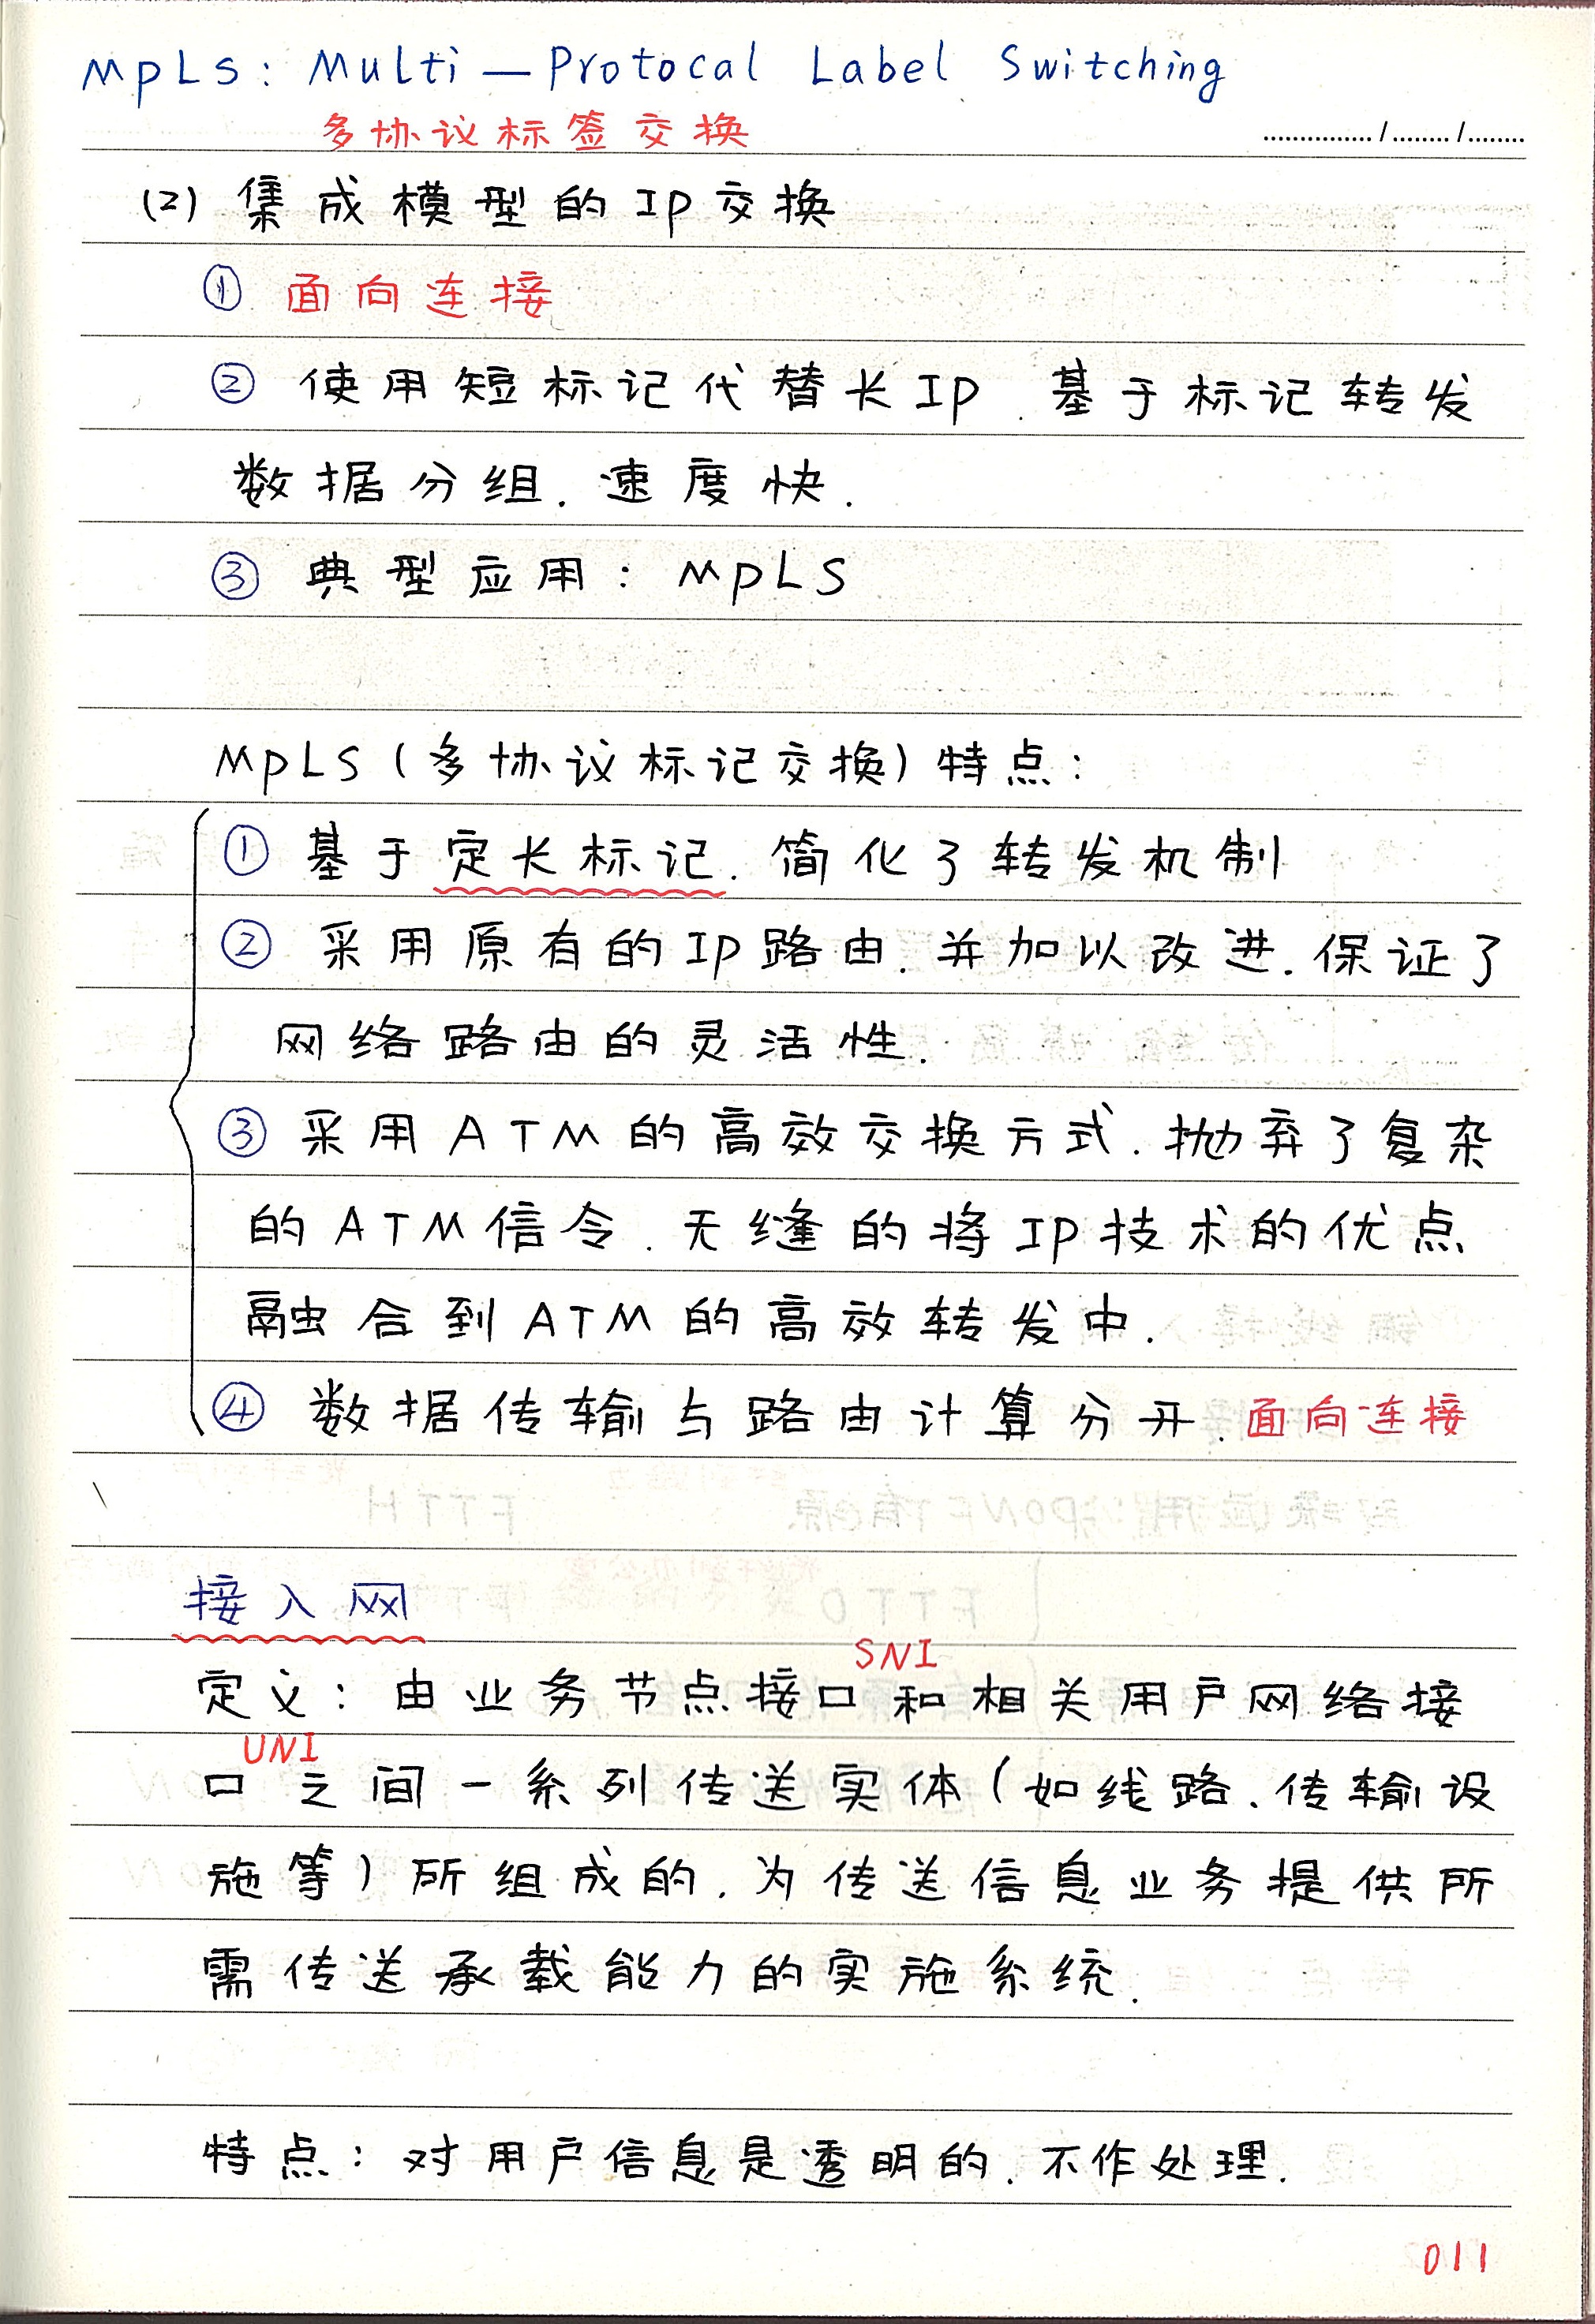 MpLs: Multi—Protocal Label Switching
多协议标签交换
(2) 集成模型的Ip交换
① 面向连接
② 使用短标记代替长Ip.基于标记转发
数据分组.速度快.
③ 典型应用: MpLS
MpLS(多协议标记交换)特点:
① 基于定长标记.简化了转发机制
② 采用原有的Ip路由.并加以改进.保证了
网络路由的灵活性.
③ 采用ATM的高效交换方式.抛弃了复杂
的ATM信令.无缝的将Ip技术的优点
融合到ATM的高效转发中.
④ 数据传输与路由计算分开.面向连接
接入网
SNI
定义:由业务节点接口和相关用户网络接
UNI
口之间一系列传送实体(如线路.传输设
施等)所组成的.为传送信息业务提供所
需传送承载能力的实施系统.
特点:对用户信息是透明的.不作处理.
011